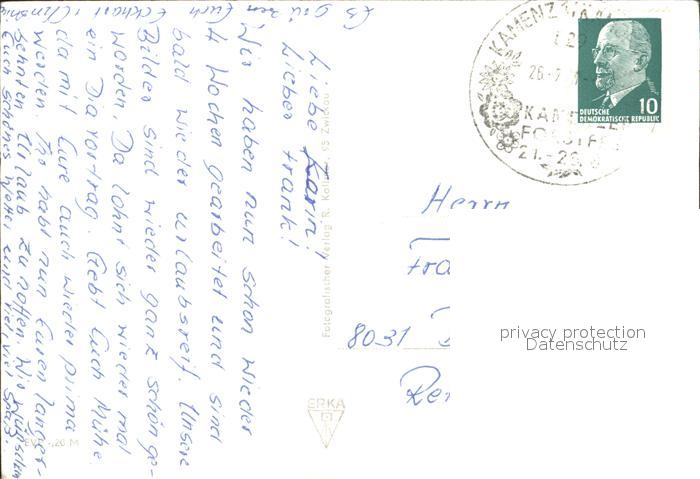 Liebe Karin!
Lieber Frank!
Wir haben nun schon wieder
4 Wochen gearbeitet und sind
bald wieder urlaubsreif. Unsere
Bilder sind wieder ganz schön ge-
worden. Da lohnt sich wieder mal
ein Diavortrag. Gebt Euch Mühe
da mit Eure auch wieder prima
werden. Ihr habt nun Euren langer-
sehnten Urlaub zu hoffen. Wir wünschen
Euch schönes Wetter und viel, viel Spaß.
Es Grüßen Euch Eckhart
EVP -,20 M
Fotografischer Verlag R. Zwickau
ERKA
KAMENZ
26.-7
21.-2
10
DEUTSCHE
DEMOKRATISCHE REPUBLIK
Herrn
Fra
8031
privacy protection
Datenschutz